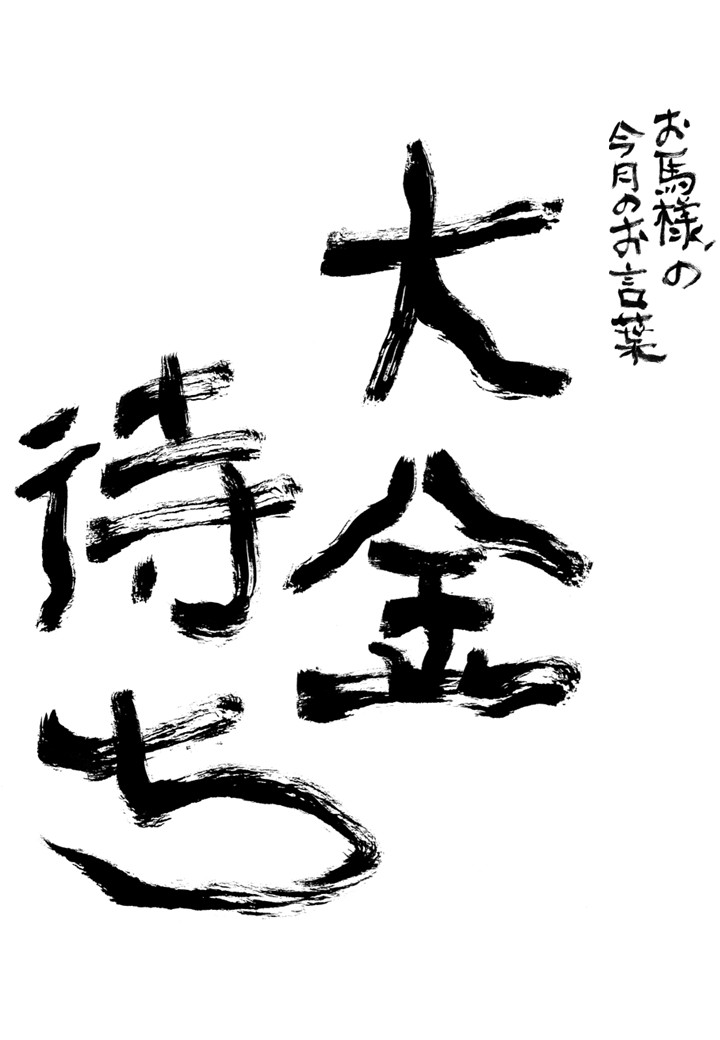 お馬様の
今月のお言葉
大金
待ち